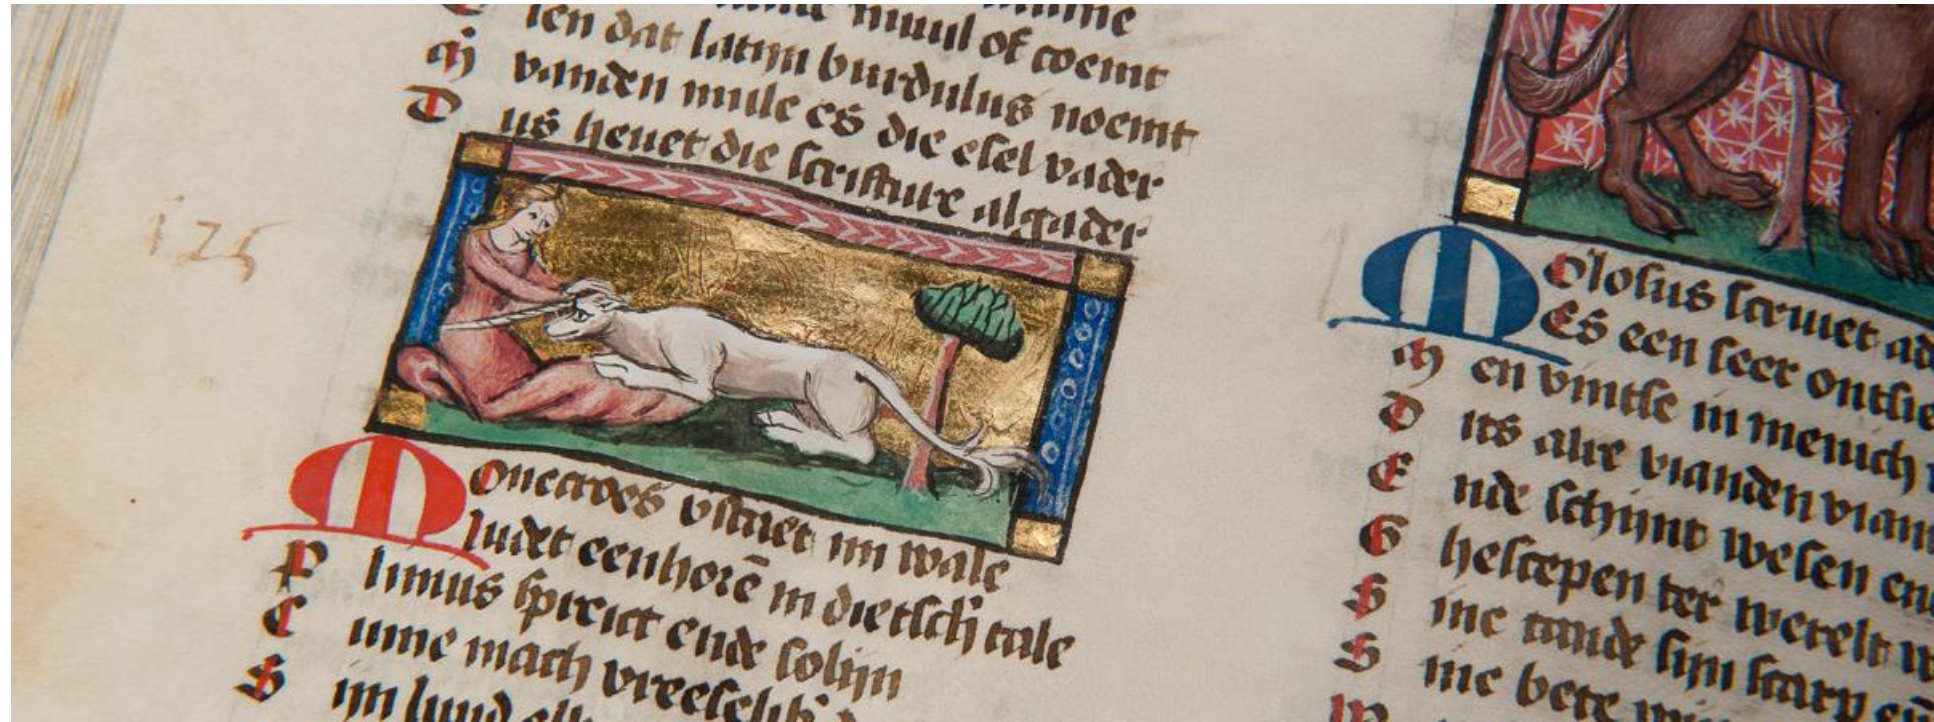 muul of coemt
ien dat latijn burdulus noemt
M vanden mule es die esel vader
Dus heuet die scrifture algader
i25
Monecroes vstaet mi wale
Ludet eenhorē in dietsch tale
Plinius spreict ende solijn
Cume mach vreeselik
Sijn luud
Molosus scriuet ad
Es een seer ontsie
Men vintse in menich
Dits alre vianden vian
Ende schijnt wesen en
Ghescepen ter werelt w
Sine tande sijn scarp eñ
Sine bete